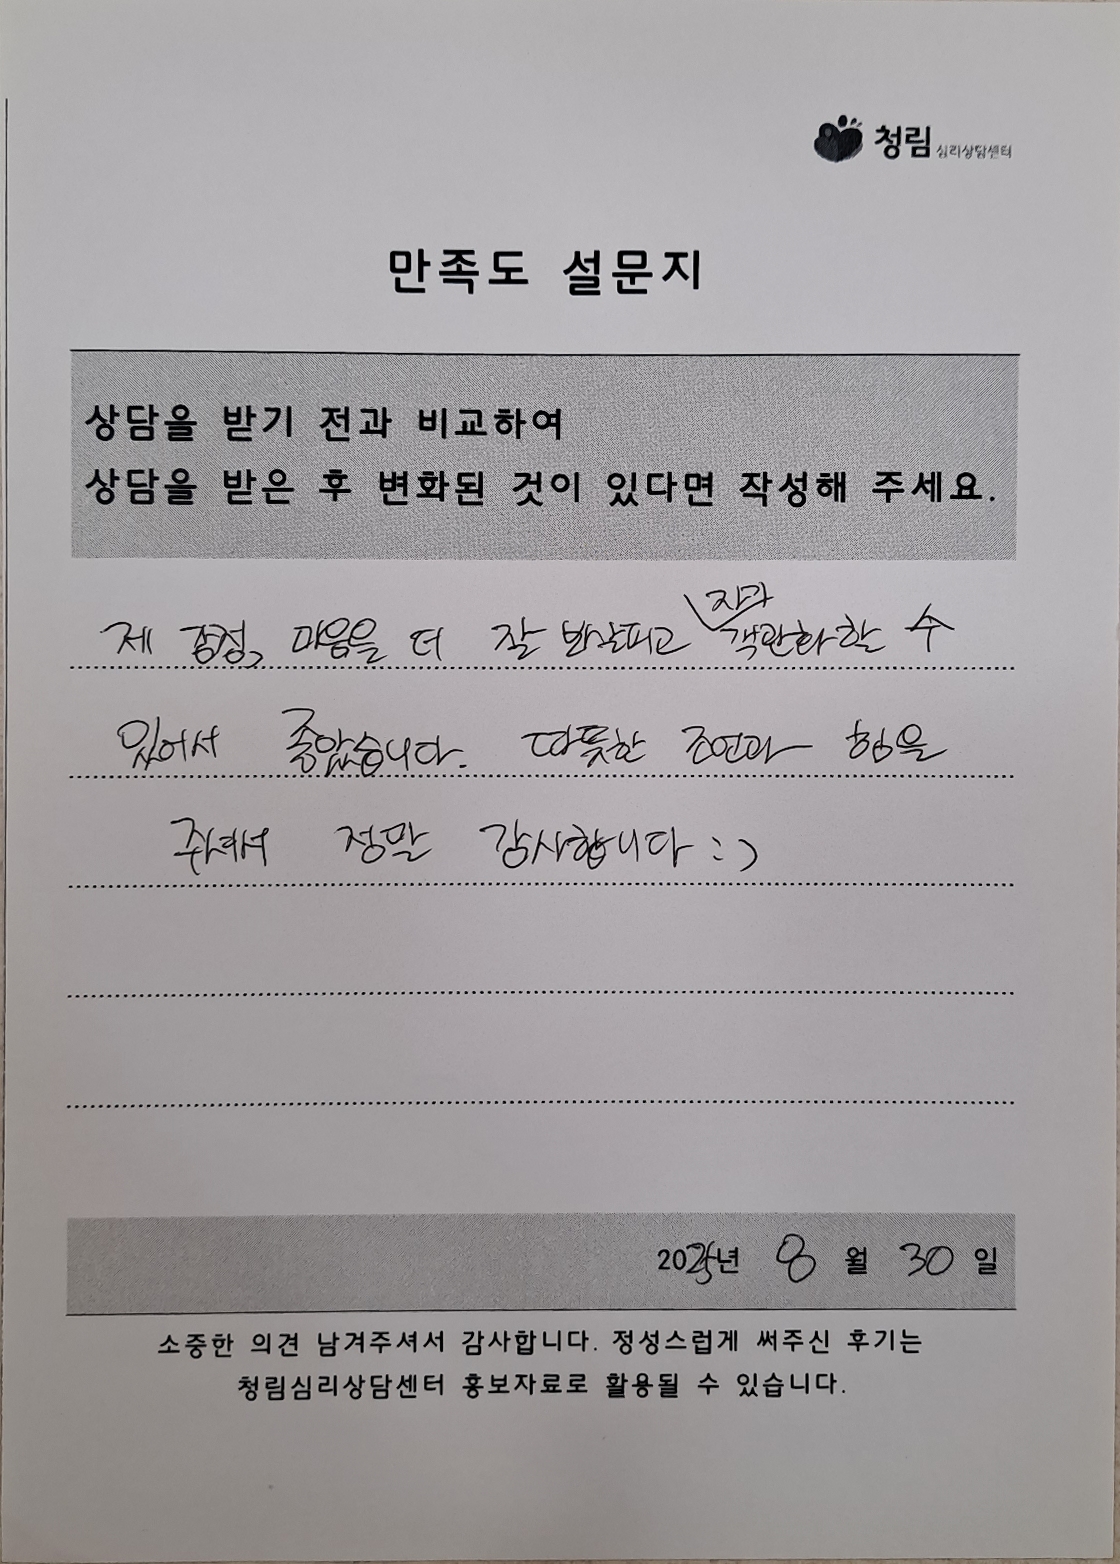 청림 심리상담센터
만족도 설문지
상담을 받기 전과 비교하여
상담을 받은 후 변화된 것이 있다면 작성해 주세요.
제 감정, 마음을 더 잘 보살피고 객관화할 수
있어서 좋았습니다. 따뜻한 조언과 힘을
주셔서 정말 감사합니다 :)
2025년 8 월 30 일
소중한 의견 남겨주셔서 감사합니다. 정성스럽게 써주신 후기는
청림심리상담센터 홍보자료로 활용될 수 있습니다.